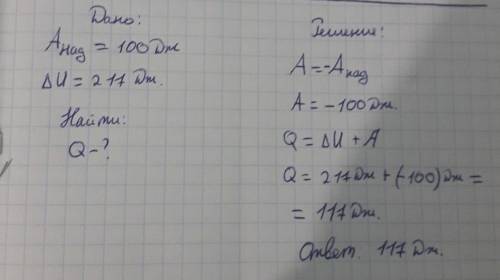 Дано:
Aнад = 100 Дж
ΔU = 217 Дж.
Найти:
Q-?
Решение:
A = -Aнад
A = -100 Дж.
Q = ΔU + A
Q = 217 Дж + (-100) Дж =
= 117 Дж.
Ответ. 117 Дж.